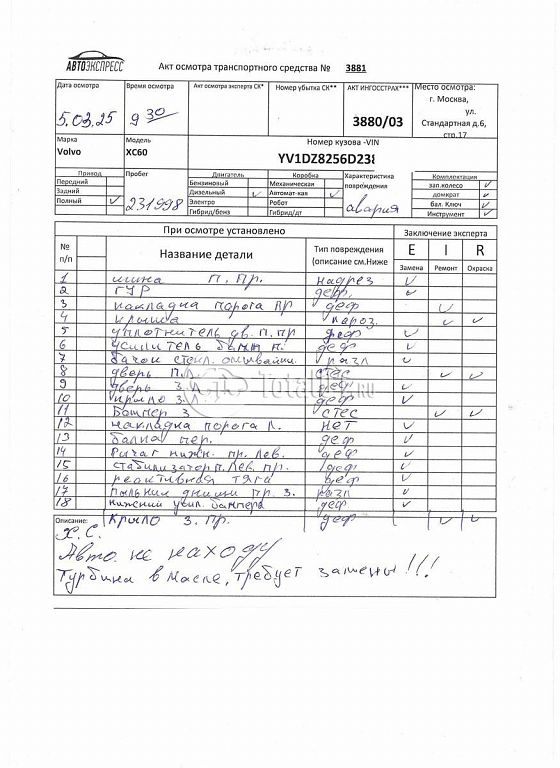 АВТОЭКСПРЕСС
Акт осмотра транспортного средства № 3881
Дата осмотра Время осмотра Акт осмотра эксперта СК* Номер убытка СК** АКТ ИНГОССТРАХ*** Место осмотра:
5.03.25 9 30 3880/03 г. Москва,
ул.
Стандартная д.6,
стр.17
Марка Модель Номер кузова -VIN
Volvo XC60 YV1DZ8256D238
Привод Пробег Двигатель Коробка Характеристика повреждения Комплектация
Передний Бензиновый Механическая зап.колесо ✓
Задний Дизельный ✓ Автомат-кая ✓ домкрат ✓
Полный ✓ 231998 Электро Робот авария бал. Ключ ✓
Гибрид/бенз Гибрид/дт Инструмент ✓
При осмотре установлено Заключение эксперта
№ п/п Название детали Тип повреждения (описание см.Ниже E I R
Замена Ремонт Окраска
1 шина П. Пр. надрез ✓
2 ГУР деф. ✓
3 накладка порога ПР деф ✓
4 крыша короз. ✓ ✓
5 уплотнитель дв. п. пр деф ✓
6 усилитель балк п. деф ✓
7 бачок стекл. омывайки разл ✓
8 дверь П.Л. стес ✓ ✓
9 дверь З.Л. деф ✓
10 крыло З.Л. деф ✓
11 Бампер З стес ✓ ✓
12 накладка порога Л. нет ✓
13 балка пер. деф ✓
14 Рычаг нижн. пр. Лев. деф ✓
15 стабилизатор п. Лев. пр. деф ✓
16 реактивная тяга деф ✓
17 Пыльник днища пр. З. разл ✓
18 нижний усил. бампера деф ✓
Описание: Крыло З. Пр. деф ✓ ✓
Х.С.
Авто не на ходу
Турбина в масле, требует замены!!!
Total01.RU